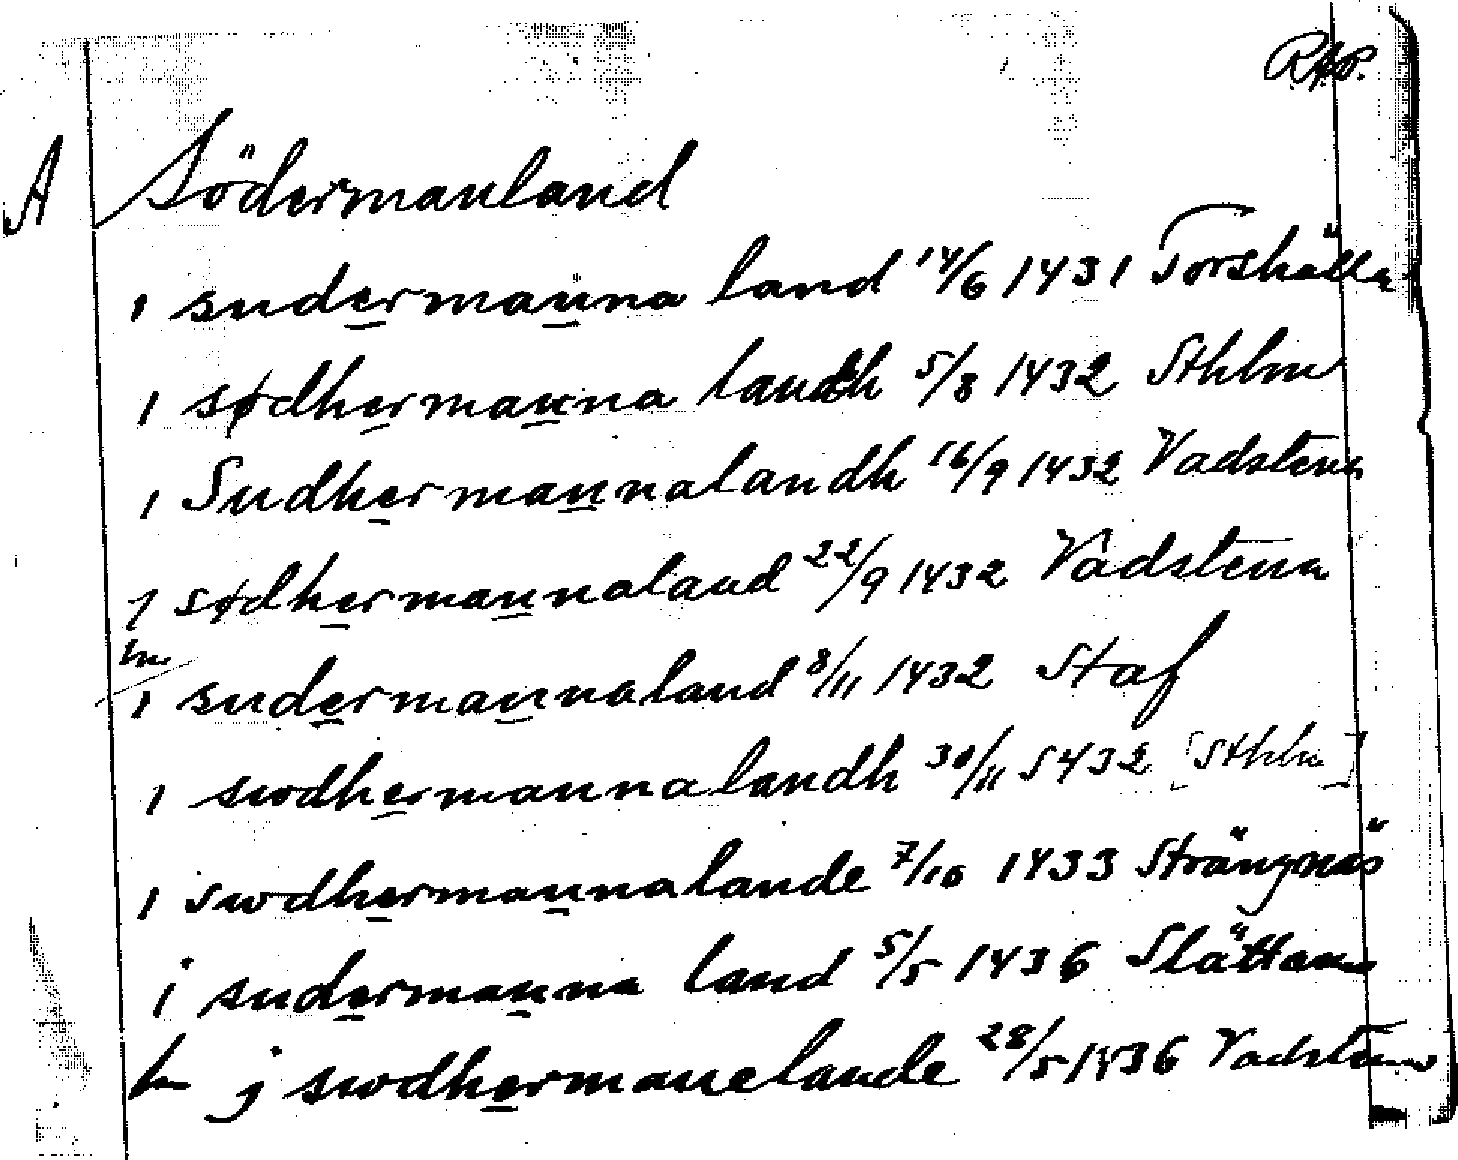 RAP.
A Södermanland
i sudermanna land 14/6 1431 Torshälla
i sødhermanna landh 5/8 1432 Sthlm
i Sudhermannalandh 16/9 1432 Vadstena
j sødhermannaland 22/9 1432 Vadstena
i sudermannaland 8/11 1432 Staf
i swdhermannalandh 30/11 1432 [Sthlm]
i swdhermannalande 7/10 1433 Strängnäs
i sudermanna land 5/5 1436 Slättena
j swdhermanelande 28/5 1436 Vadstena